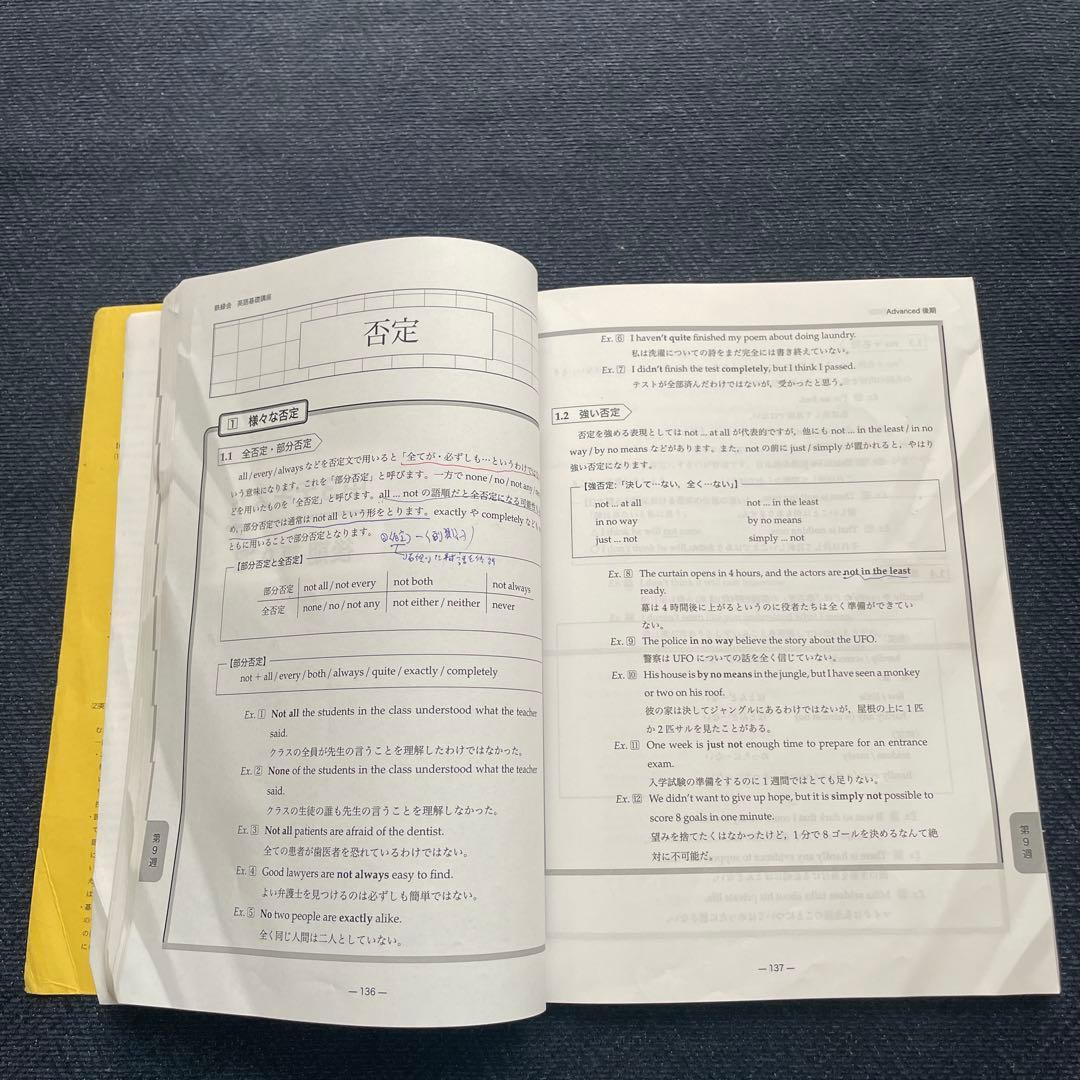 鉄緑会 英語基礎講座
否定
1 様々な否定
1.1 全否定・部分否定
all / every / always などを否定文で用いると「全てが・必ずしも…というわけでは
いう意味になります。これを「部分否定」と呼びます。一方で none / no / not any /
どを用いたものを「全否定」と呼びます。all ... not の語順だと全否定になる可能性
め、部分否定では通常は not all という形をとります。exactly や completely など
ともに用いることで部分否定となります。
【部分否定と全否定】
部分否定 not all / not every not both not always
全否定 none / no / not any not either / neither never
【部分否定】
not + all / every / both / always / quite / exactly / completely
Ex. 1 Not all the students in the class understood what the teacher
said.
クラスの全員が先生の言うことを理解したわけではなかった。
Ex. 2 None of the students in the class understood what the teacher
said.
クラスの生徒の誰も先生の言うことを理解しなかった。
Ex. 3 Not all patients are afraid of the dentist.
全ての患者が歯医者を恐れているわけではない。
Ex. 4 Good lawyers are not always easy to find.
よい弁護士を見つけるのは必ずしも簡単ではない。
Ex. 5 No two people are exactly alike.
全く同じ人間は二人としていない。
第9週
— 136 —
Advanced 後期
Ex. 6 I haven't quite finished my poem about doing laundry.
私は洗濯についての詩をまだ完全には書き終えていない。
Ex. 7 I didn't finish the test completely, but I think I passed.
テストが全部済んだわけではないが、受かったと思う。
1.2 強い否定
否定を強める表現としては not ... at all が代表的ですが、他にも not ... in the least / in no
way / by no means などがあります。また、not の前に just / simply が置かれると、やはり
強い否定になります。
【強否定:「決して…ない、全く…ない」】
not ... at all not ... in the least
in no way by no means
just ... not simply ... not
Ex. 8 The curtain opens in 4 hours, and the actors are not in the least
ready.
幕は 4 時間後に上がるというのに役者たちは全く準備ができてい
ない。
Ex. 9 The police in no way believe the story about the UFO.
警察は UFO についての話を全く信じていない。
Ex. 10 His house is by no means in the jungle, but I have seen a monkey
or two on his roof.
彼の家は決してジャングルにあるわけではないが、屋根の上に 1 匹
か 2 匹サルを見たことがある。
Ex. 11 One week is just not enough time to prepare for an entrance
exam.
入学試験の準備をするのに 1 週間ではとても足りない。
Ex. 12 We didn't want to give up hope, but it is simply not possible to
score 8 goals in one minute.
望みを捨てたくはなかったけど、1 分で 8 ゴールを決めるなんて絶
対に不可能だ。
第9週
— 137 —